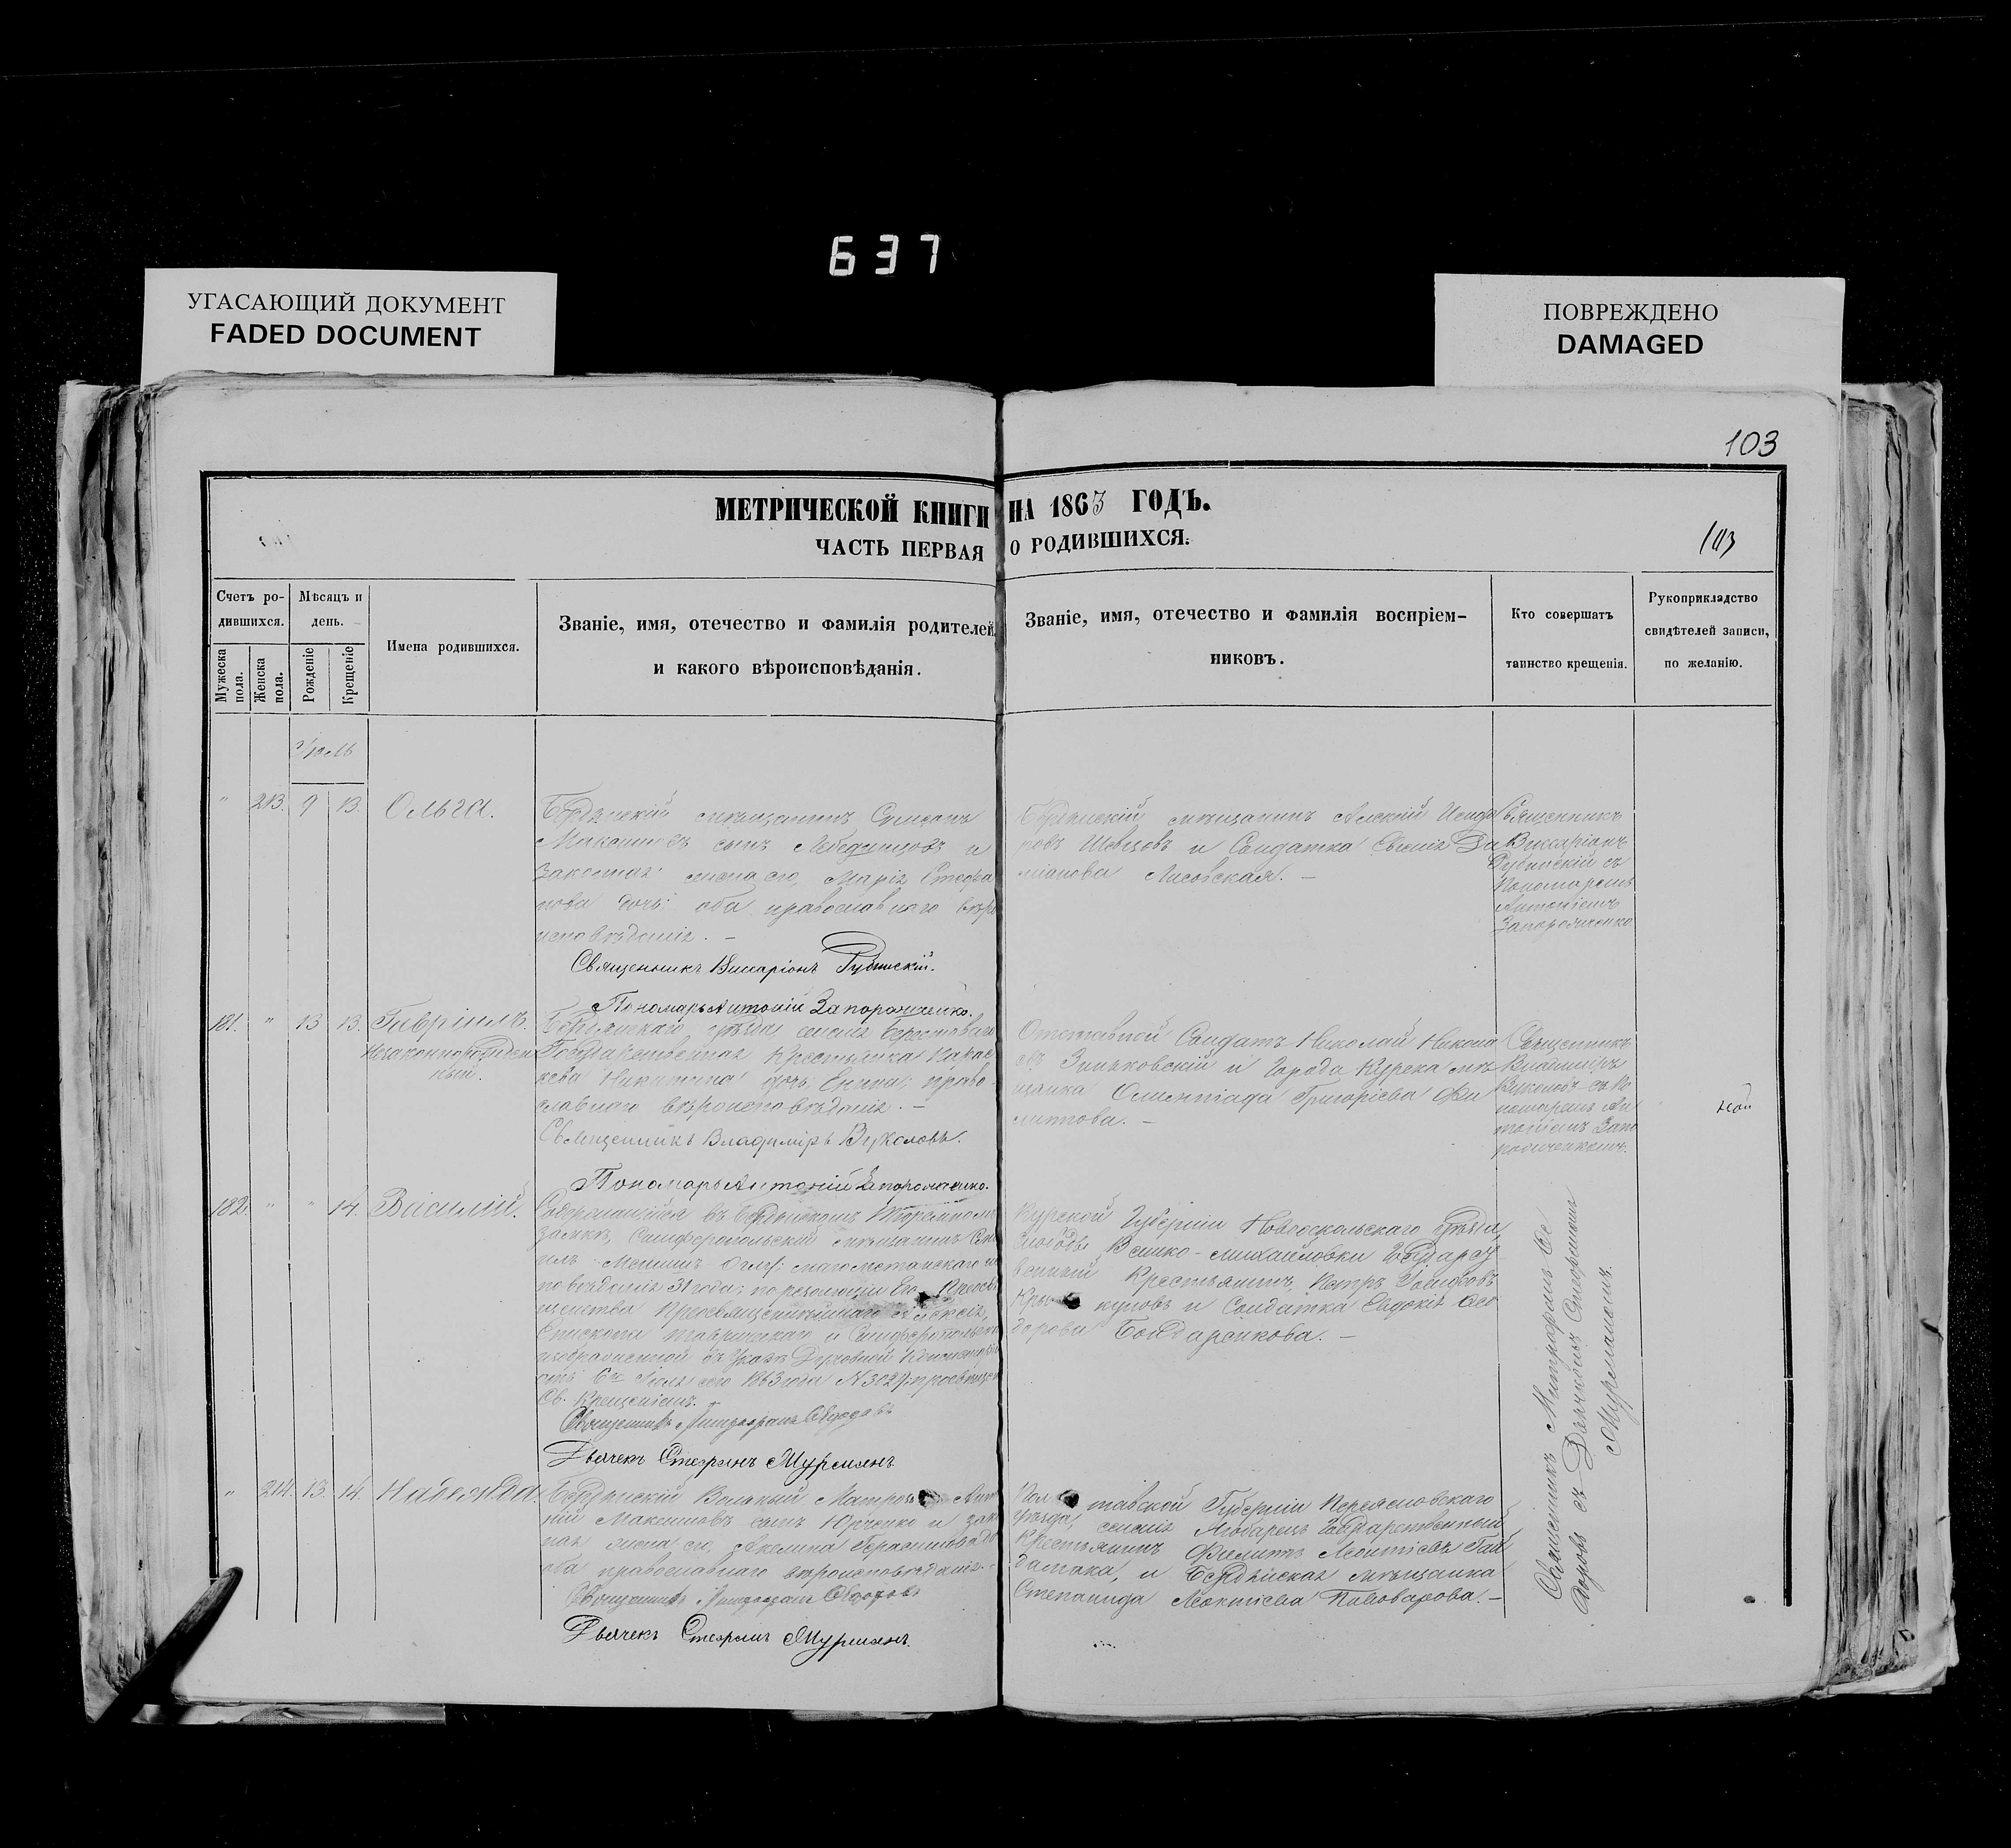 637
УГАСАЮЩИЙ ДОКУМЕНТ
FADED DOCUMENT
ПОВРЕЖДЕНО
DAMAGED
103
МЕТРИЧЕСКОЙ КНИГИ НА 1863 ГОДЪ.
ЧАСТЬ ПЕРВАЯ О РОДИВШИХСЯ.
103
Счетъ ро-
дившихся.
Мужеска пола.
Женска пола.
Мѣсяцъ и
день.
Рожденіе
Крещеніе
Имена родившихся.
Званіе, имя, отечество и фамилія родителей,
и какого вѣроисповѣданія.
Званіе, имя, отечество и фамилія воспріем-
никовъ.
Кто совершатъ
таинство крещенія.
Рукоприкладство
свидѣтелей записи,
по желанію.
Іюль
" 213. 9 13. Ольга.
Бердянскій мѣщанинъ Сѵмеонъ
Максимовъ сынъ Лебединцовъ и
законная жена его, Марія Стефа
нова дочь: оба православнаго вѣро
исповѣданія. –
Священникъ Виссаріонъ
Пономарь Антоній Запорожченко.
Бердянскій мѣщанинъ Алексій Исидо
ровъ Шевцовъ и Солдатка Евгенія Да
міанова Лисовская. –
Священникъ
Виссаріонъ
съ
Пономаремъ
Антоніемъ
Запорожченко.
181. " 13 13. Гавріилъ.
Незаконнорожден
ный.
Бердянскаго уѣзда селенія Берестоваго
Государственная Крестьянка Парас
кева Никитина дочь, право
славнаго вѣроисповѣданія. –
Священникъ Владиміръ Вуколовъ.
Пономарь Антоній Запорожченко.
Отставной Солдатъ Николай Никона
овъ Зинковскій и Города Курска мѣ
щанка Олимпіада Григорієва Фи
липпова. –
Священникъ
Владиміръ
Вуколовъ съ По
номаремъ Ан
тоніемъ Запо
рожченкомъ.
182. " " 14. Василій.
Содержащійся въ Бердянскомъ Тюремномъ
Замкѣ, Симферопольскій мѣщанинъ
Оглу; магометанскаго
повѣданія 31 года; по резолюціи Его Преосвя
щенства Преосвященнѣйшаго Алексія,
Епископа Таврическаго и Симферопольскаго
изображенной въ Указѣ Духовной Консисторіи
отъ 6го Іюля сего 1863 года N 3027 просвѣщенъ
Св. Крещеніемъ. –
Священникъ Митрофанъ Ѳедоровъ
Дьячекъ Стефанъ Мурманъ
Курской Губерніи Новооскольскаго уѣзда,
Слободы Велико-михайловки Государст
венный Крестьянинъ, Петръ Іосифовъ
и Солдатка Евдокія Ѳео
дорова Бондаренкова. –
Священникъ Митрофанъ Ѳе
доровъ съ Дьячкомъ Стефаномъ
Мурманомъ.
" 214. 13. 14. Надежда.
Бердянскій Вольный Матрозъ Анто
ній Максимовъ сынъ Юрченко и закон
ная жена его, Акелина Герасимова дочь
оба православнаго вѣроисповѣданія. –
Священникъ Митрофанъ Ѳедоровъ
Дьячекъ Стефанъ Мурманъ.
Полтавской Губерніи Переясловскаго
уѣзда, селенія Государственный
Крестьянинъ Филиппъ Леонтіевъ Гай
дамака, и Бердянская мѣщанка
Степанида Леонтіева Пивоварова. –